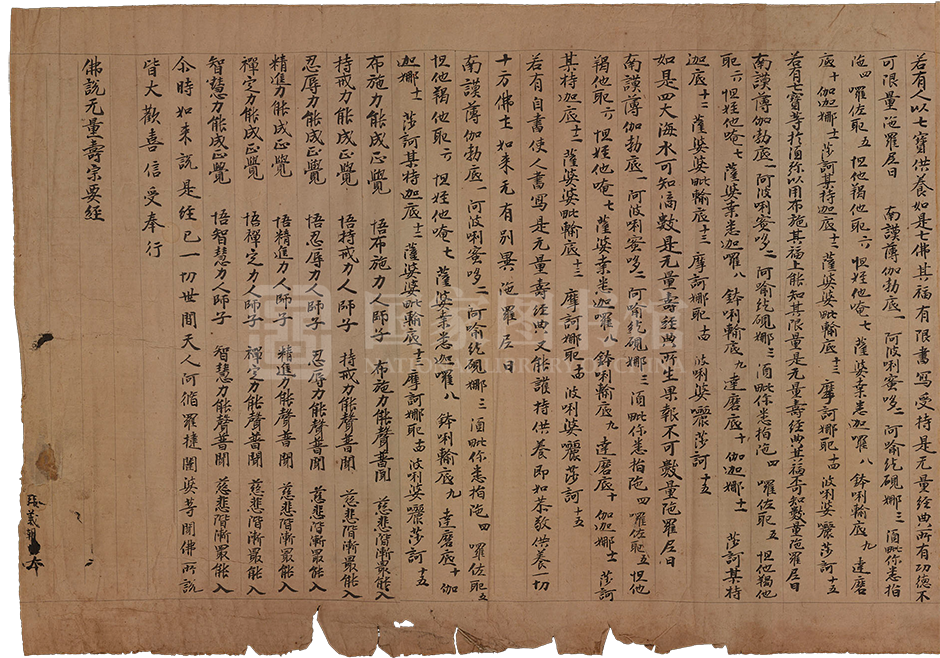 若有人以七寶供養如是七佛其福有限書寫受持是无量經典所有功德不
可限量陁羅尼曰　南謨薄伽勃底一阿波唎蜜哆二阿喻紇硯娜三須毗你悉指
陁四囉佐耶五怛他羯他耶六怛姪他唵七薩婆桒悉伽囉八鉢唎輸底九達磨
底十伽迦娜十一莎訶某持迦底十二薩婆婆毗輸底十三摩訶娜耶十四波唎婆囇莎訶十五
若有七寶等於須弥以用布施其福上能知其限量是无量壽經典其福不可知數量陁羅尼曰
南謨薄伽勃底一阿波唎蜜哆二阿喻紇硯娜三須毗你悉指陁四囉佐耶五怛他羯他
耶六怛姪他唵七薩婆桒悉伽囉八鉢唎輸底九達磨底十伽迦娜十一莎訶某持
迦底十二薩婆婆毗輸底十三摩訶娜耶十四波唎婆囇莎訶十五
如是四大海水可知滴數是无量壽經典所生果報不可數量陁羅尼曰
南謨薄伽勃底一阿波唎蜜哆二阿喻紇硯娜三須毗你悉指陁四囉佐耶五怛他
羯他耶六怛姪他唵七薩婆桒悉伽囉八鉢唎輸底九達磨底十伽迦娜十一莎訶
某持迦底十二薩婆婆毗輸底十三摩訶娜耶十四波唎婆囇莎訶十五
若有自書使人書寫是无量壽經典又能護持供養即如恭敬供養一切
十方佛土如來无有別異陁羅尼曰
南謨薄伽勃底一阿波唎蜜哆二阿喻紇硯娜三須毗你悉指陁四囉佐耶五
怛他羯他耶六怛姪他唵七薩婆桒悉伽囉八鉢唎輸底九達磨底十伽
迦娜十一莎訶某持迦底十二薩婆婆毗輸底十三摩訶娜耶十四波唎婆囇莎訶十五
布施力能成正覺　悟布施力人師子　布施力能聲普聞　慈悲階漸最能入
持戒力能成正覺　悟持戒力人師子　持戒力能聲普聞　慈悲階漸最能入
忍辱力能成正覺　悟忍辱力人師子　忍辱力能聲普聞　慈悲階漸最能入
精進力能成正覺　悟精進力人師子　精進力能聲普聞　慈悲階漸最能入
禪定力能成正覺　悟禪定力人師子　禪定力能聲普聞　慈悲階漸最能入
智慧力能成正覺　悟智慧力人師子　智慧力能聲普聞　慈悲階漸最能入
尒時如來說是經已一切世間天人阿脩羅揵闥婆等聞佛所說
皆大歡喜信受奉行
佛說无量壽宗要經
張義朝
國家圖書館
NATIONAL LIBRARY OF CHINA